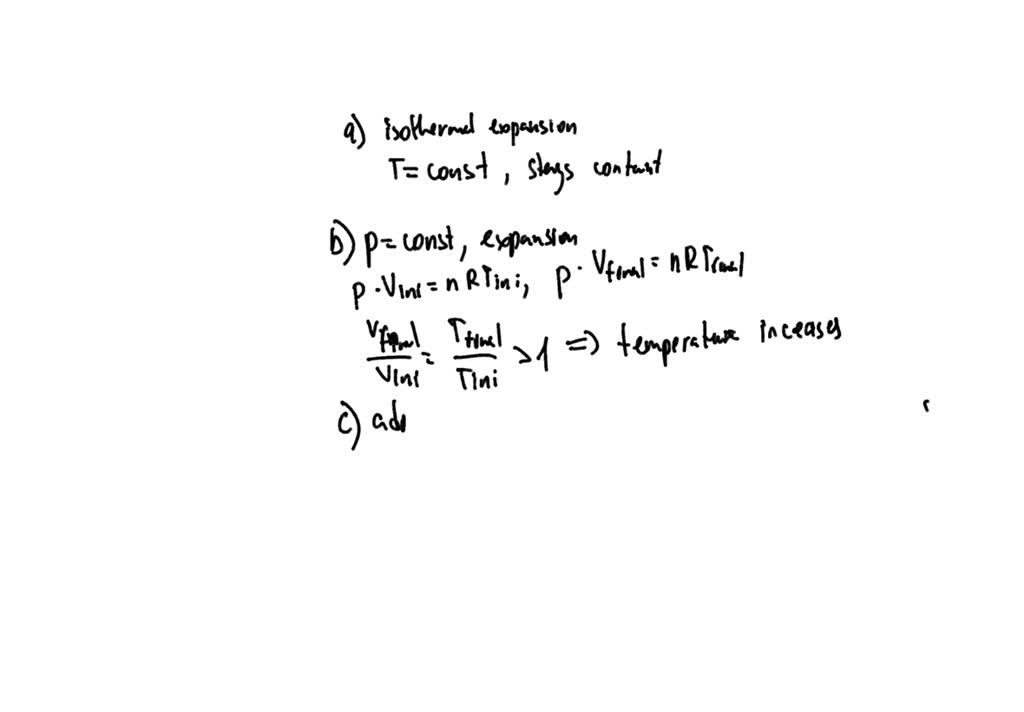 a) isothermal expansion
T = const, stays contant
b) p = const, expansion
p · Vini = n R Tini, p · Vfinal = n R Tfinal
Vfinal/Vini = Tfinal/Tini > 1 => temperature inceases
c) adi